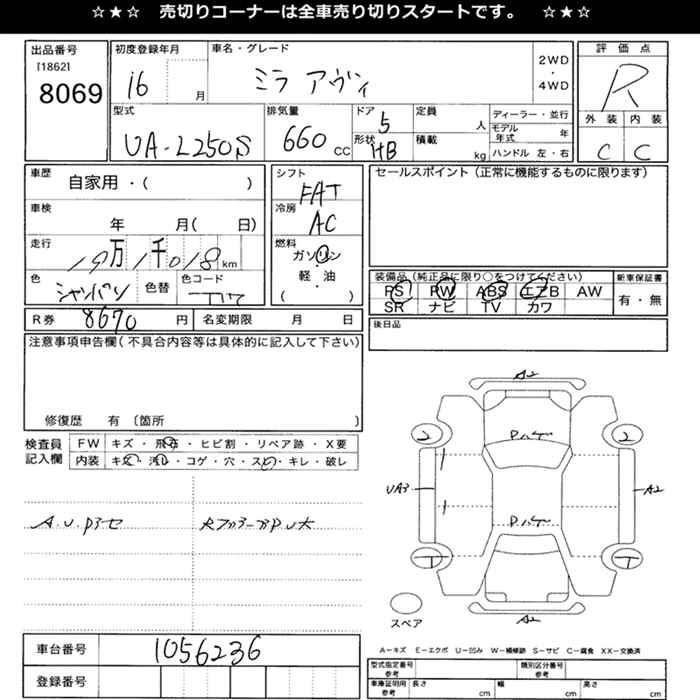 ☆★☆ 売切りコーナーは全車売り切りスタートです。 ☆★☆
出品番号 初度登録年月 車名・グレード 評価点
[1862] 2WD
8069 16 月 ミラ アヴィ ・ 4WD R
型式 排気量 ドア 定員 ディーラー・並行 外装 内装
UA-L250S 660 CC 5 人 モデル年式 年 C C
形状 HB 積載 kg ハンドル 左・右
車歴 自家用・( ) シフト FAT セールスポイント(正常に機能するものに限ります)
車検 年 月( 日) 冷房 AC
走行 19万 1千018 km 燃料 ガソリン
色 シャンパン 色替 色コード T17 軽・油
( )
装備品(純正品に限り○をつけてください) 新車保証書
PS PW ABS エアB AW 有・無
SR ナビ TV カワ
R券 8670 円 名変期限 月 日 後日品
注意事項申告欄(不具合内容等は具体的に記入して下さい)
修復歴 有 〔箇所 〕
検査員記入欄 FW キズ・飛石・ヒビ割・リペア跡・X要
内装 キズ・汚れ・コゲ・穴・スレ・キレ・破レ
A.U.P3セ
A2
2 Pハゲ 2
UA3 Pハゲ A2
T T
A2
スペア
A－キズ E－エクボ U－凹み W－補修跡 S－サビ C－腐食 XX－交換済
車台番号 1056236
型式指定番号 参考 類別区分番号 参考
登録番号 車庫証明用 参考 長さ cm 幅 cm 高さ cm